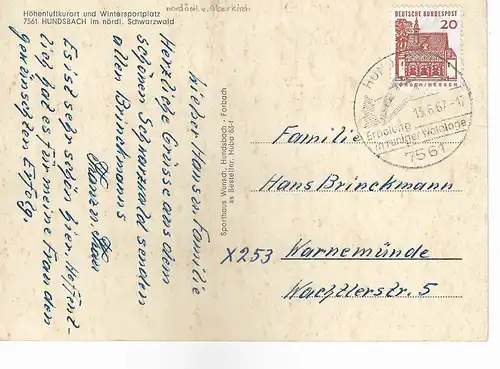 nordöstl. v. Oberkirch
Höhenluftkurort und Wintersportplatz
7561 HUNDSBACH im nördl. Schwarzwald
Lieber Hans u. Familie
Herzliche Grüsse aus dem
schönen Schwarzwald senden
allen Brinckmanns
u. Frau
Es ist sehr schön hier. Hoffent-
lich hat es für meine Frau den
gewünschten Erfolg.
Sporthaus Wunsch, Hundsbach - Forbach
ss Bestellnr. Hubo 63-1
DEUTSCHE BUNDESPOST
20
LORSCH/HESSEN
15.6.67-17
Erholung
in ruhiger Waldlage
7561
Familie
Hans Brinckmann
X253 Warnemünde
Wachtlerstr. 5